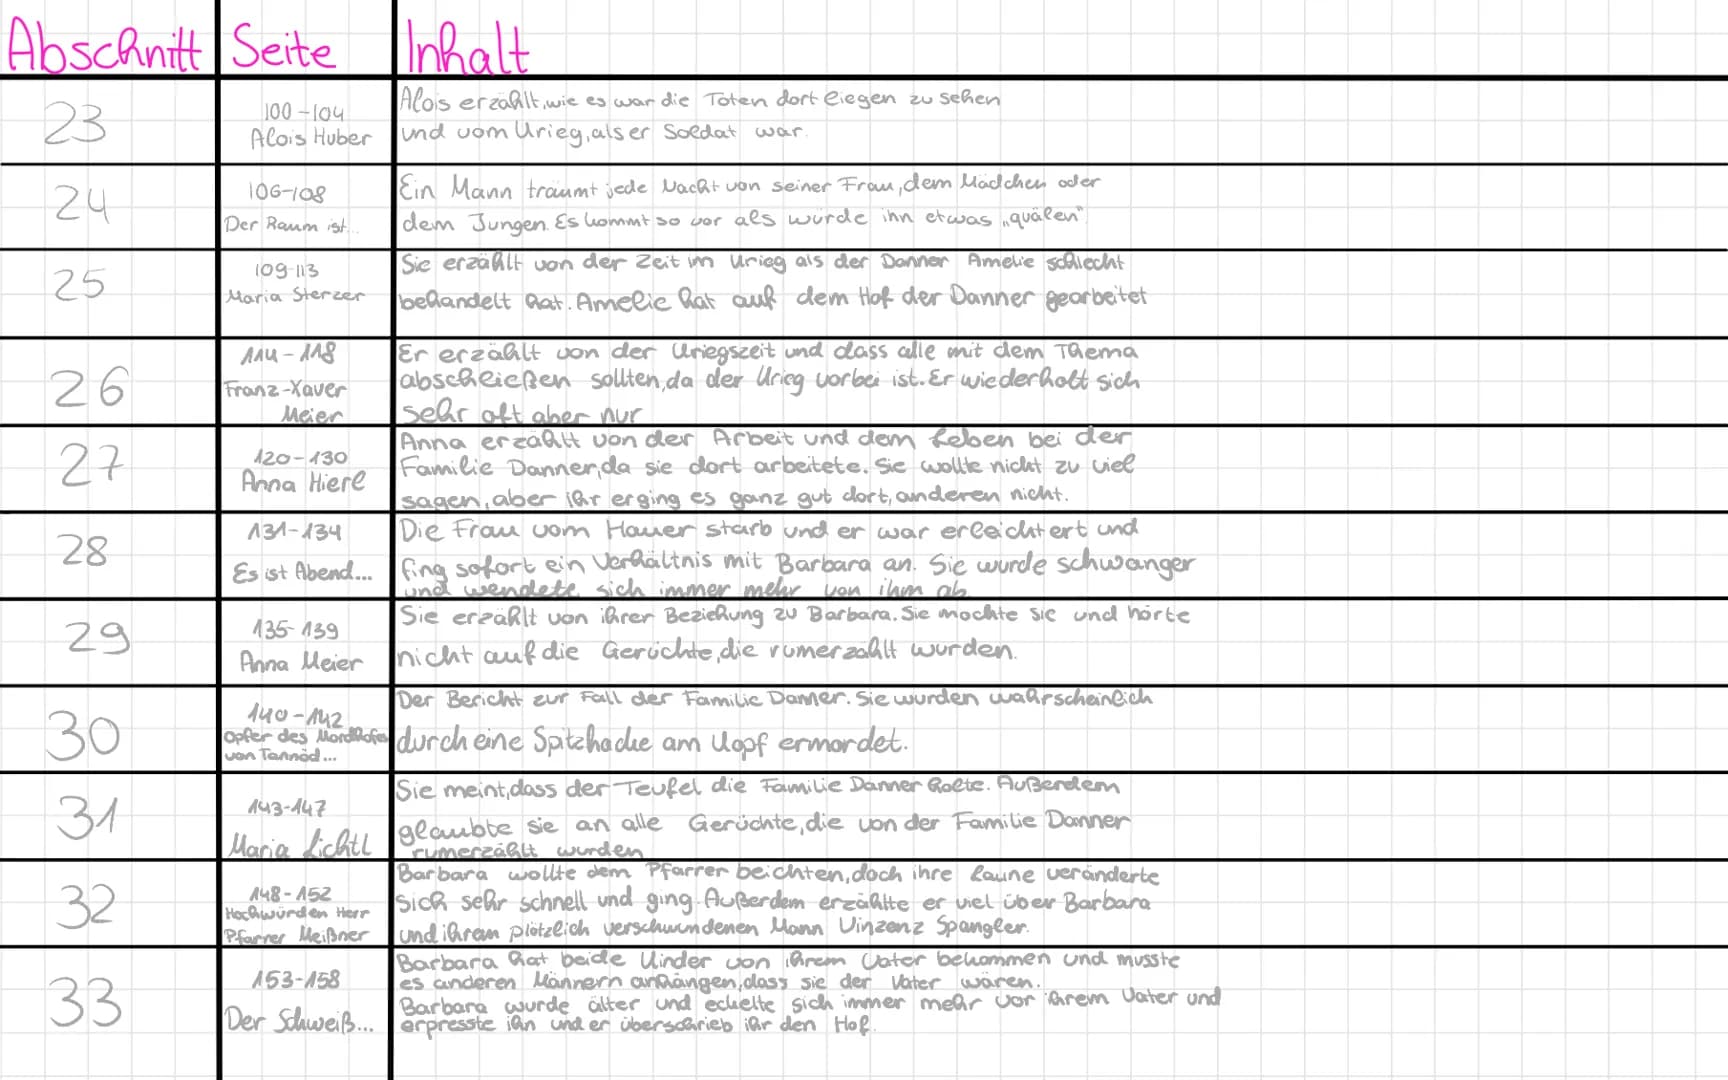 Abschnitt Seite Inhalt
23
100-104
Alois Huber
Alois erzählt, wie es war die Toten dort liegen zu sehen
und vom Krieg, als er Soldat war.
24
106-108
Der Raum ist...
Ein Mann träumt jede Nacht von seiner Frau, dem Mädchen oder
dem Jungen. Es kommt so vor als würde ihn etwas „quälen“
25
109-113
Maria Sterzer
Sie erzählt von der Zeit im Krieg als der Danner Amelie schlecht
behandelt hat. Amelie hat auf dem Hof der Danner gearbeitet
26
114-118
Franz-Xaver
Meier
Er erzählt von der Kriegszeit und dass alle mit dem Thema
abschließen sollten, da der Krieg vorbei ist. Er wiederholt sich
sehr oft aber nur
27
120-130
Anna Hierl
Anna erzählt von der Arbeit und dem Leben bei der
Familie Danner, da sie dort arbeitete. Sie wollte nicht zu viel
sagen, aber ihr erging es ganz gut dort, anderen nicht.
28
131-134
Es ist Abend...
Die Frau vom Hauer starb und er war erleichtert und
fing sofort ein Verhältnis mit Barbara an. Sie wurde schwanger
und wendete sich immer mehr von ihm ab
29
135-139
Anna Meier
Sie erzählt von ihrer Beziehung zu Barbara. Sie mochte sie und hörte
nicht auf die Gerüchte, die rumerzählt wurden.
30
140-142
Opfer des Mordhofes
von Tannöd...
Der Bericht zur Fall der Familie Danner. Sie wurden wahrscheinlich
durch eine Spitzhacke am Kopf ermordet.
31
143-147
Maria Lichtl
Sie meint, dass der Teufel die Familie Danner holte. Außerdem
glaubte sie an alle Gerüchte, die von der Familie Danner
rumerzählt wurden
32
148-152
Hochwürden Herr
Pfarrer Meißner
Barbara wollte dem Pfarrer beichten, doch ihre Laune veränderte
sich sehr schnell und ging. Außerdem erzählte er viel über Barbara
und ihram plötzlich verschwundenen Mann Vinzenz Spangler.
33
153-158
Der Schweiß...
Barbara hat beide Kinder von ihrem Vater bekommen und musste
es anderen Männern anhängen, dass sie der Vater wären.
Barbara wurde älter und eckelte sich immer mehr vor ihrem Vater und
erpresste ihn und er überschrieb ihr den Hof.